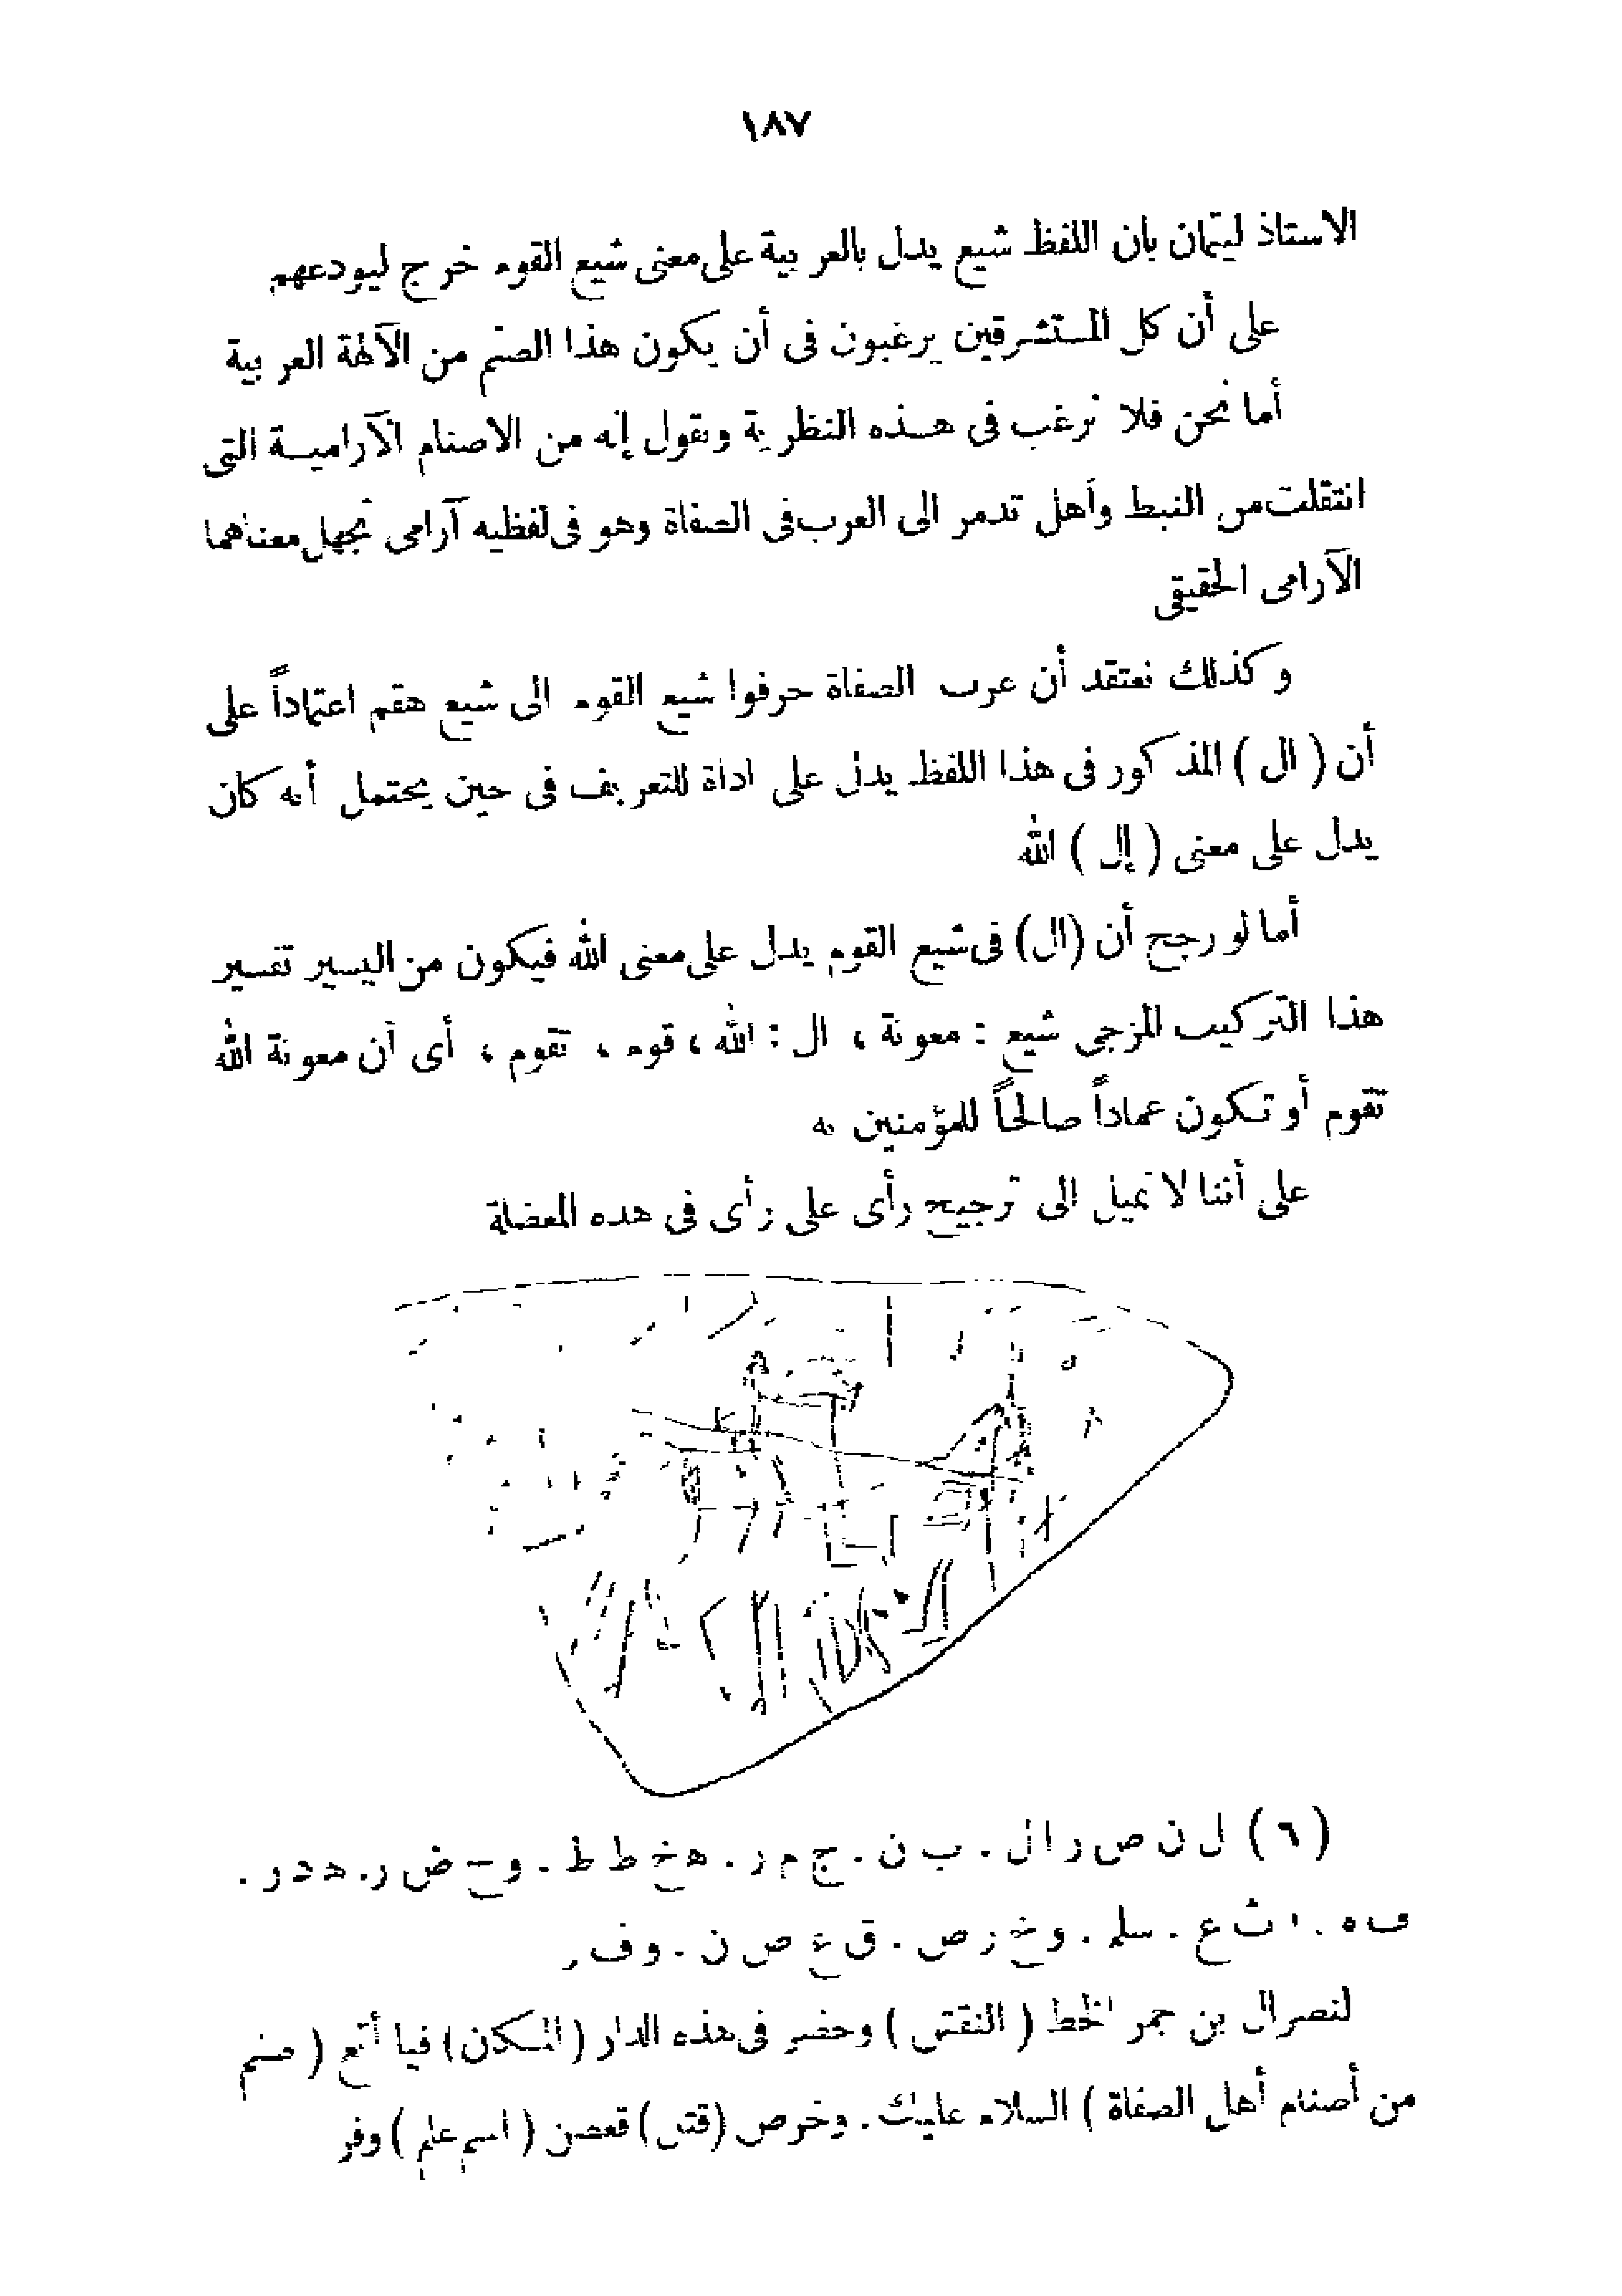 ١٨٧
الاستاذ ليتمان بان اللفظ شيع يدل بالعربية على معنى شيع القوم خرج ليودعهم
على أن كل المستشرقين يرغبون فى أن يكون هذا الصنم من الآلهة العربية
أما نحن فلا نرغب فى هذه النظرية ونقول إنه من الاصنام الآرامية التى
انتقلت من النبط وأهل تدمر الى العرب فى الصفاة وهو فى لفظيه آرامى نجهل معناهما
الآرامى الحقيقى
وكذلك نعتقد أن عرب الصفاة حرفوا شيع القوم الى شيع هقم اعتماداً على
أن ( ال ) المذكور فى هذا اللفظ يدل على اداة للتعريف فى حين يحتمل أنه كان
يدل على معنى ( إل ) الله
أما لو رجح أن (ال) فى شيع القوم يدل على معنى الله فيكون من اليسير تفسير
هذا التركيب المزجى شيع : معونة ، ال : الله ، قوم ، تقوم ، أى أن معونة الله
تقوم أو تكون عماداً صالحاً للمؤمنين به
على أننا لا نميل الى ترجيح رأى على رأى فى هذه المعضلة
( ٦ ) ل ن ص ر ا ل . ب ن . ج م ر . ه خ ط ط . و ح ض ر . ه د ر .
ف ه . ا ث ع . سلم . و خ ر ص . ق ع ص ن . و ف ر
لنصرال بن جمر الخط ( النقش ) وحضر فى هذه الدار ( المكان ) فيا أثع ( صنم
من أصنام أهل الصفاة ) السلام عليك . وخرص (قتل) قعصن ( اسم علم ) وفر